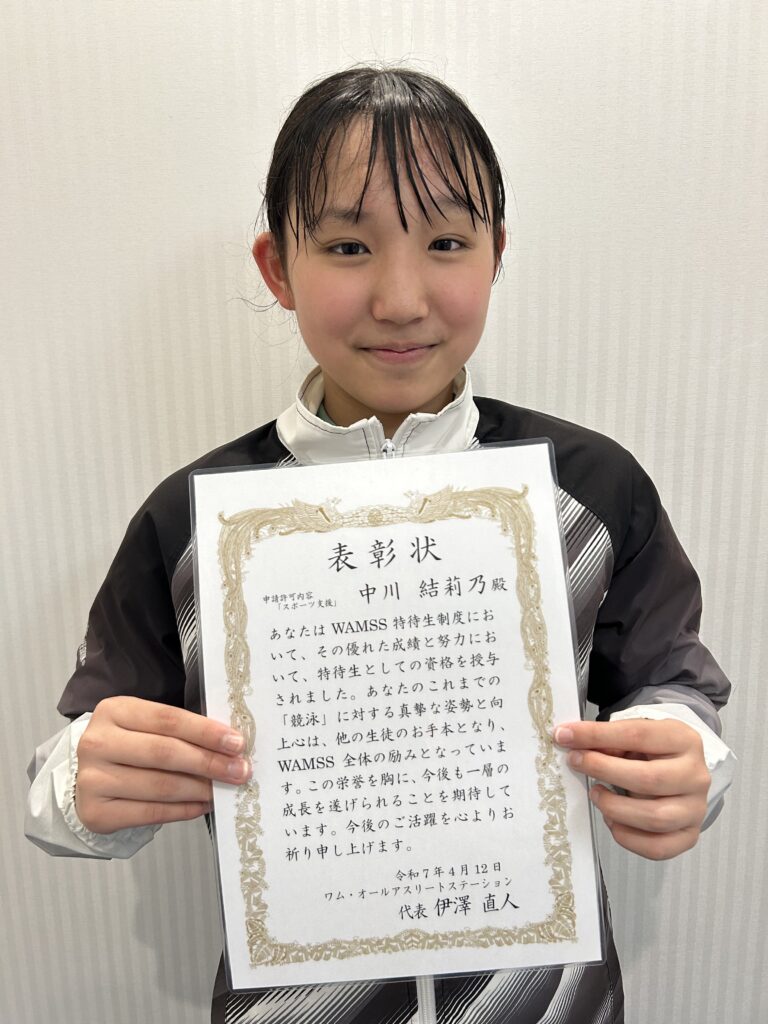 表彰状
申請許可内容
「スポーツ支援」
中川 結莉乃殿
あなたは WAMSS 特待生制度にお
いて、その優れた成績と努力にお
いて、特待生としての資格を授与
されました。あなたのこれまでの
「競泳」に対する真摯な姿勢と向
上心は、他の生徒のお手本となり、
WAMSS 全体の励みとなっていま
す。この栄誉を胸に、今後も一層の
成長を遂げられることを期待して
います。今後のご活躍を心よりお
祈り申し上げます。
令和7年4月12日
ワム・オールアスリートステーション
代表 伊澤 直人